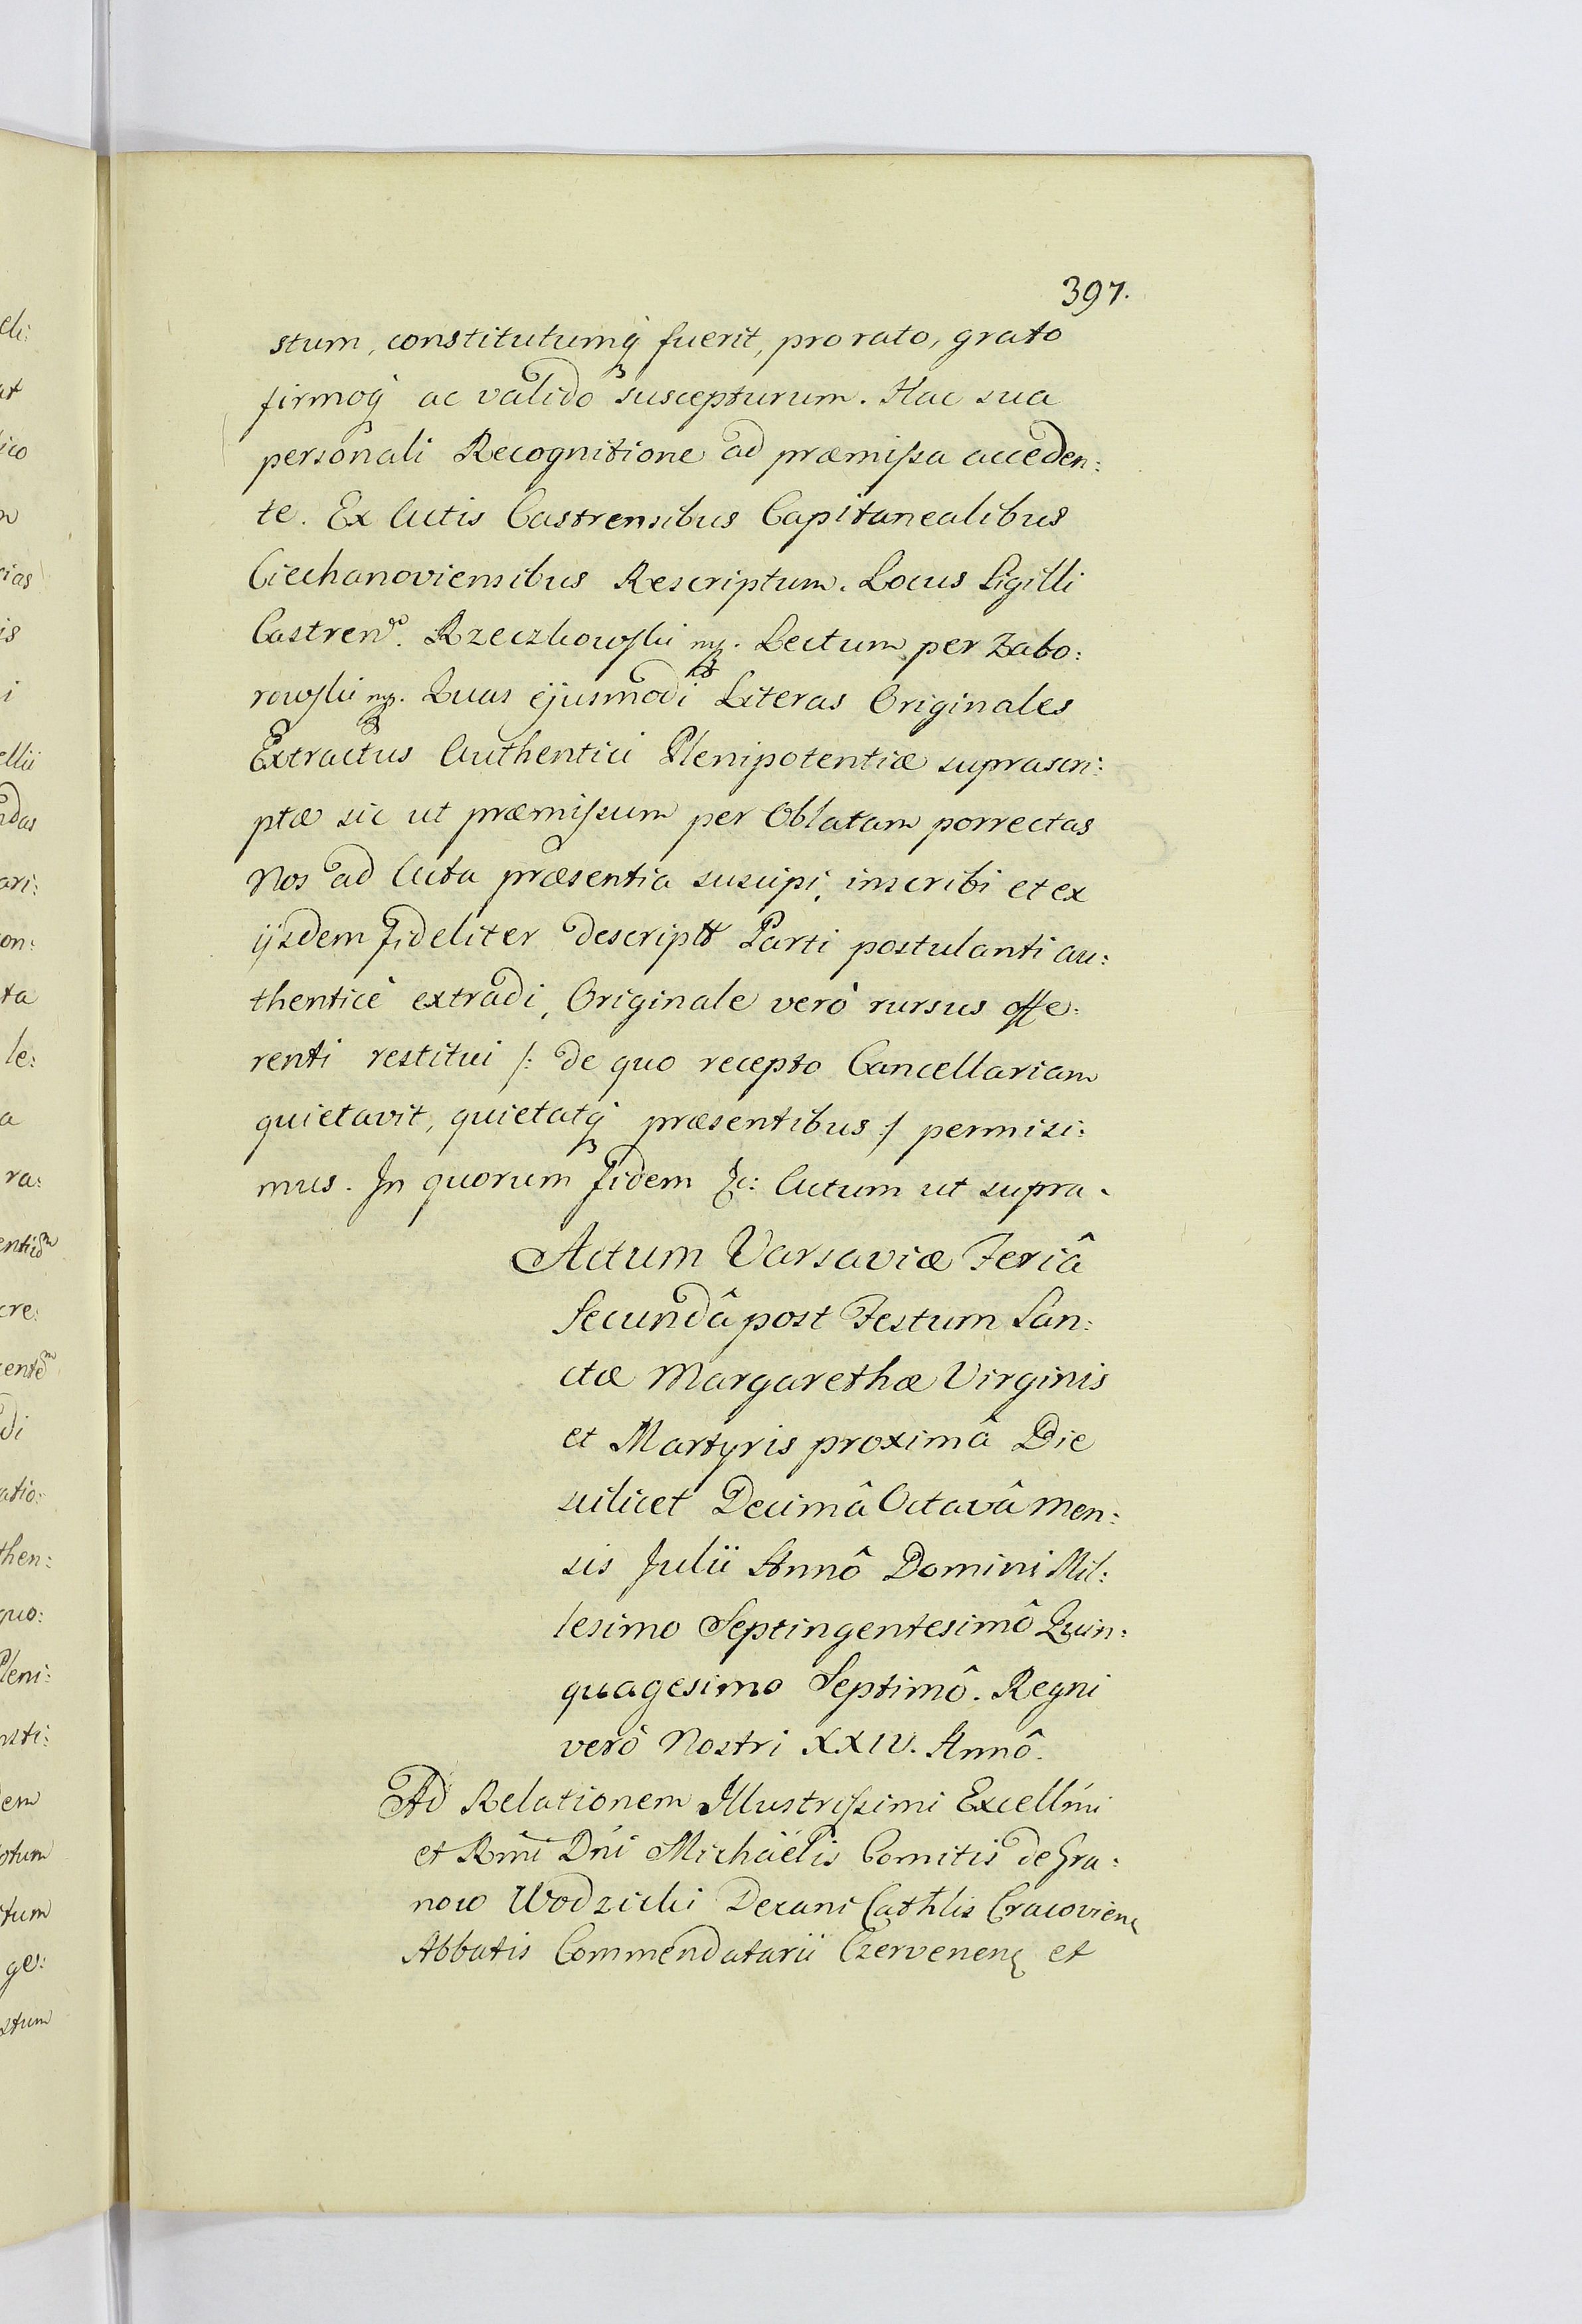 397.
stum, constitutumq̃ fuerit, pro rato, grato
firmoq̃ ac valido suscepturum. Hac sua
personali Recognitione ad præmissa acceden:
te. Ex Actis Castrensibus Capitanealibus
Ciechanoviensibus Rescriptum. Locus Sigilli
Castren. Rzeczkowski mp. Lectum per Zabo:
rowski mp. Quas ejusmodi Literas Originales
Extractus Authentici Plenipotentiæ suprascri:
ptæ sic ut præmissum per Oblatam porrectas
Nos ad Acta præsentia suscipi, inscribi et ex
ijsdem fideliter descriptt Parti postulanti au:
thenticè extradi, Originale verò rursus offe:
renti restitui /: de quo recepto Cancellariam
quietavit, quietatq̃ præsentibus :/ permisi:
mus. In quorum fidem &c: Actum ut supra.
Actum Varsaviæ Feriâ
Secundâ post Festum San:
ctæ Margarethæ Virginis
et Martyris proximâ Die
scilicet Decimâ Octavâ Men:
sis Julii Annô Domini Mil:
lesimo Septingentesimô Quin:
quagesimo Septimô. Regni
verò Nostri XXIV. Annô.
Ad Relationem Illustrissimi Excellmi
et Rmi Dni Michaëlis Comitis de Gra:
now Wodzicki Decani Cathlis Cracovien
Abbatis Commendatarii Czervenen et